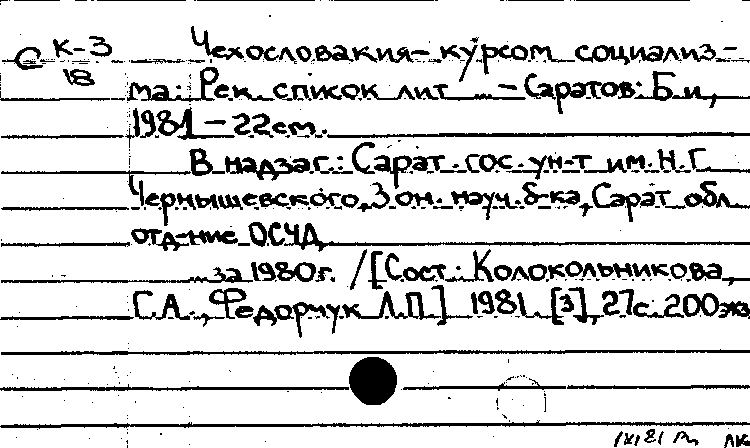 С К-3
18
Чехословакия - курсом социализ-
ма: Рек. список лит ... - Саратов: Б.и.,
1981 - 22 см.
В надзаг.: Сарат. гос. ун-т им. Н.Г.
Чернышевского, Зон. науч. б-ка, Сарат обл
отд-ние ОСЧД.
... за 1980 г. / [Сост.: Колокольникова,
Г.А., Федорчук Л.П.] 1981. [3], 27 с. 200 экз